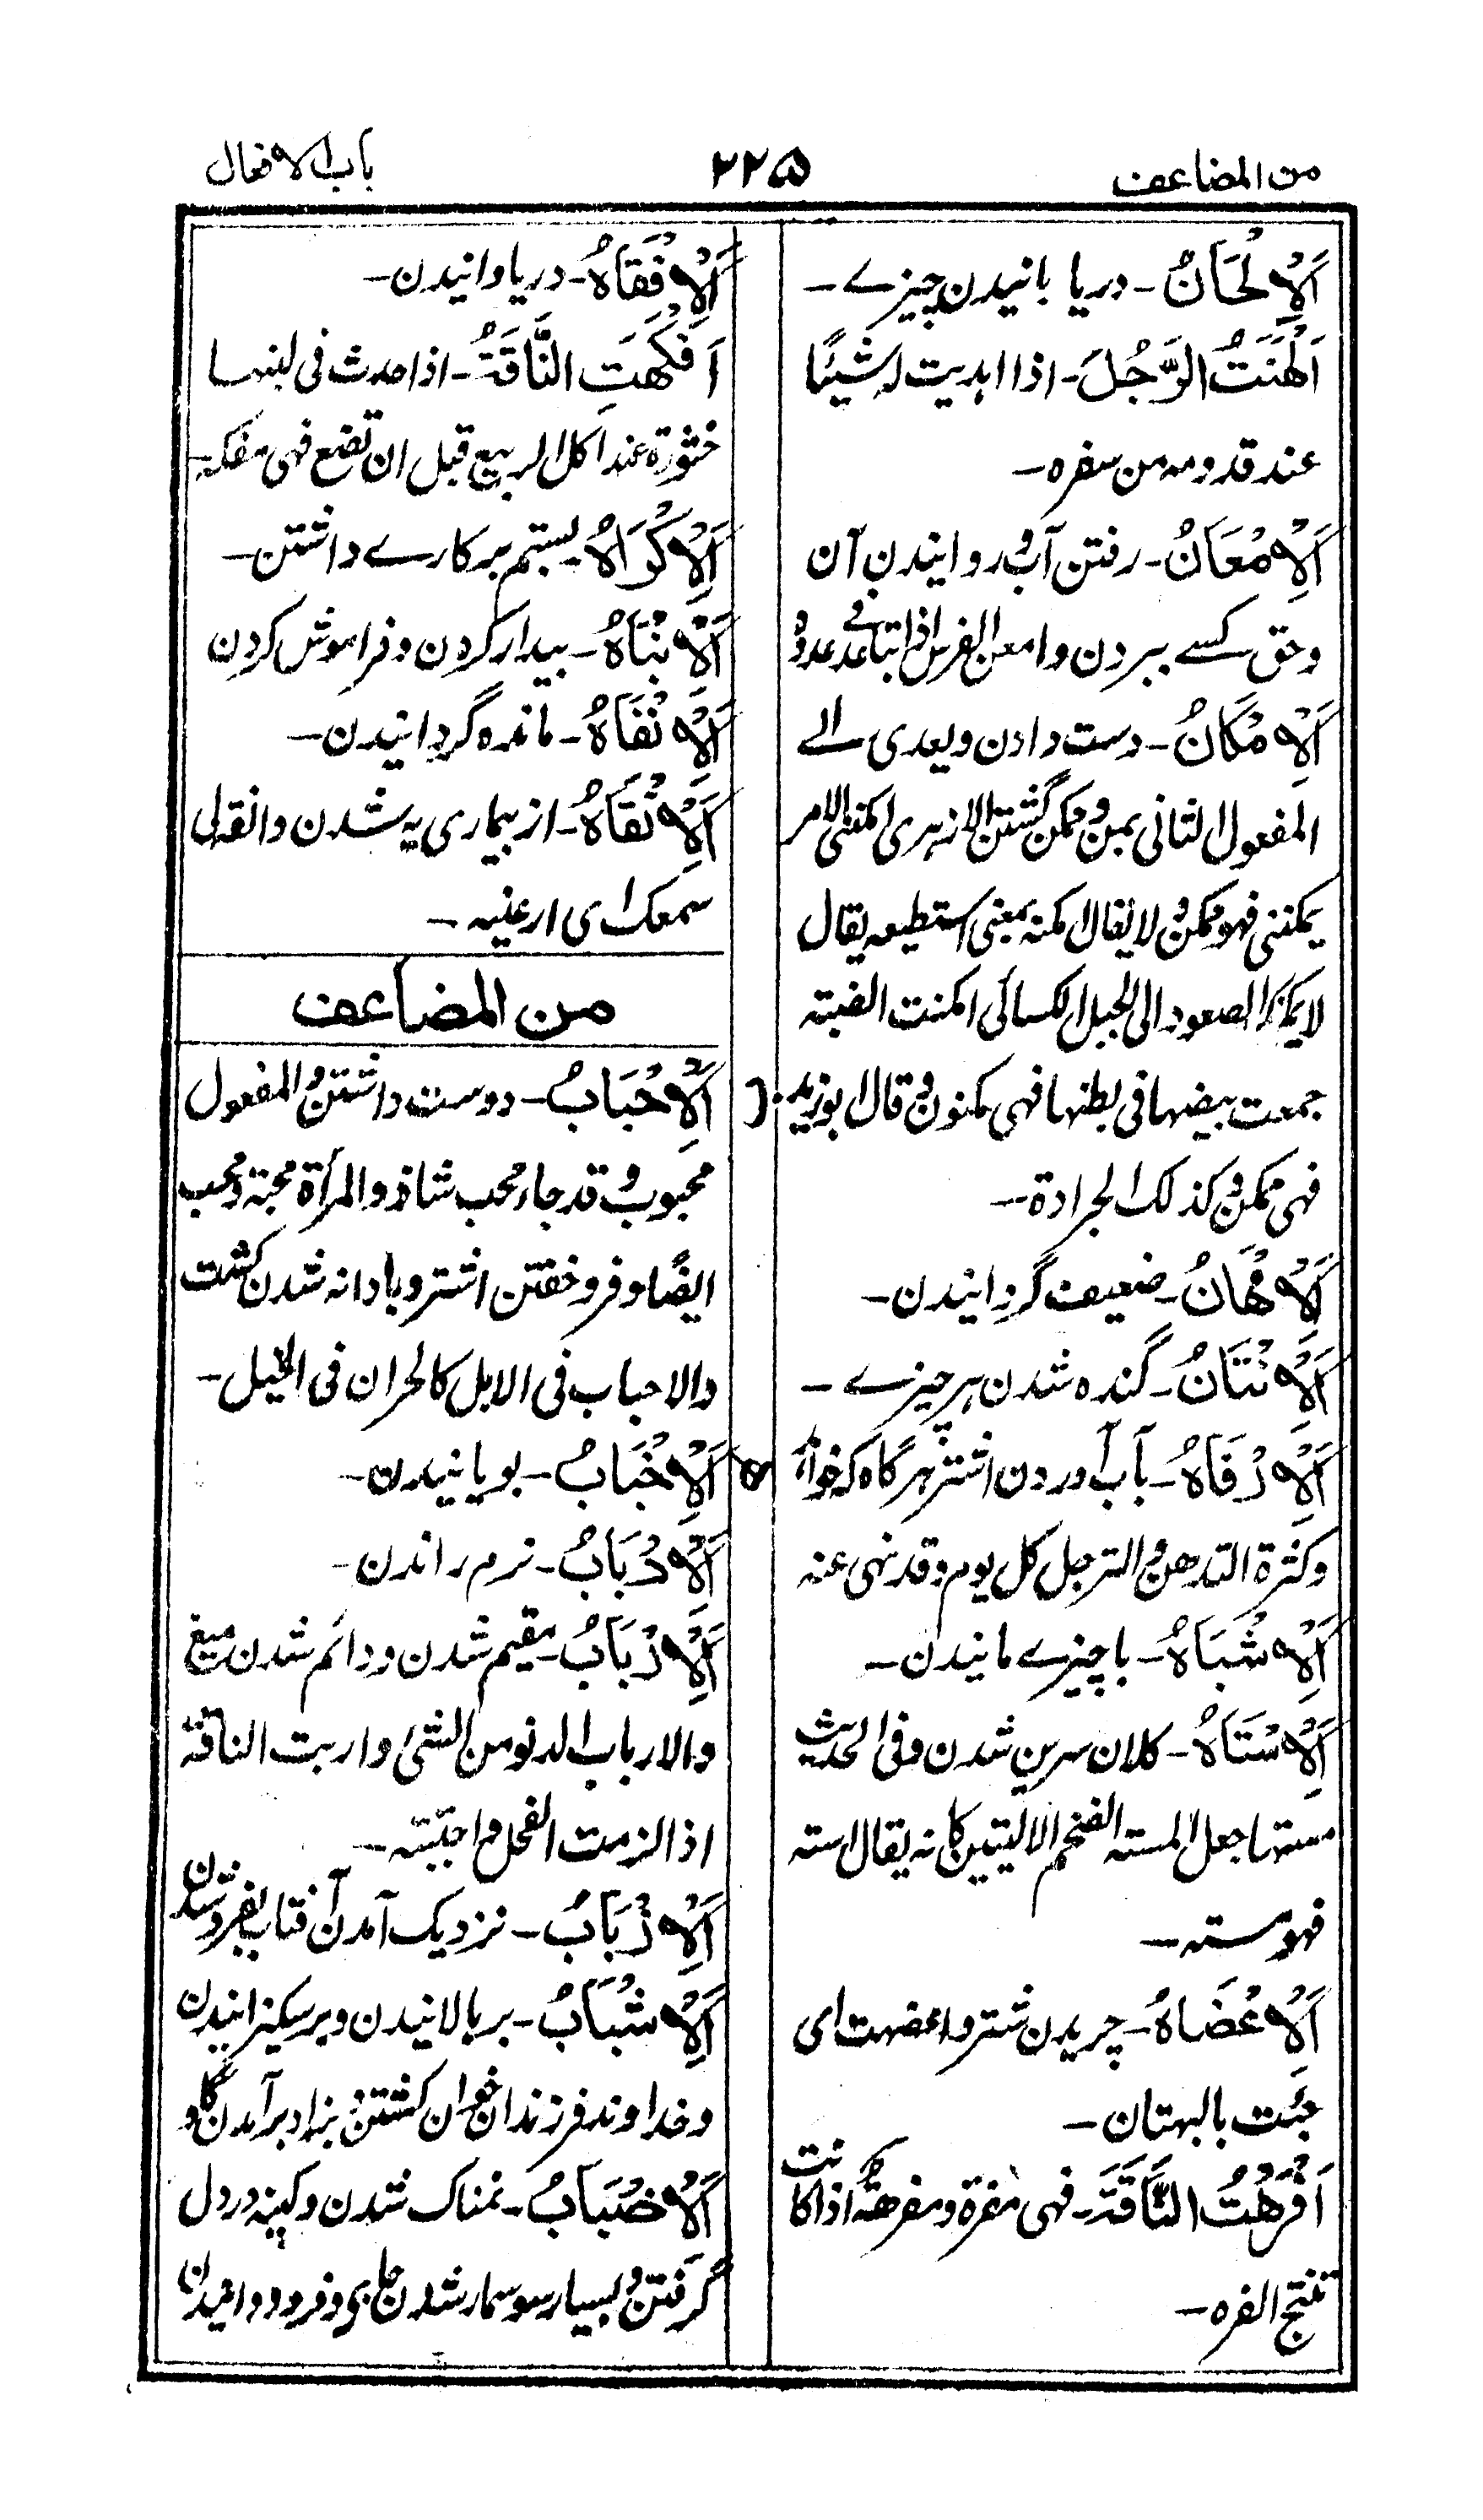 من المضاعف
۲۲۵
باب الافعال
اَلْاِلْحَانُ - دریا بانیدن چیزے -
اَلْهَنْتُ الرَّجُلَ - اذا اهدیت له شیئًا
عند قدومه من سفره -
اَلْاِمْعَانُ - رفتن آب و روانیدن آن
وحق کسے ببردن وامعن الفرس اذا تباعد فی عدوه
اَلْاِمْکَانُ - دست دادن ویعدی الے
المفعول الثانی بمن وممکن گشتن الازهری امکننی الامر
یمکننی فهو ممکن ولا یقال امکنه بمعنی استطیعه یقال
لا یمکنک الصعود الی الجبل الکسائی امکنت الضبته
جمعت بیضها فی بطنها فهی مکنون وقال ابوزید
فهی ممکن وکذلک الجرادة -
اَلْاِمْهَانُ - ضعیف گردانیدن -
اَلْاِنْتَانُ - گنده شدن هر چیزے -
اَلْاِرْفَاهُ - بآب آوردن اشتر هرگاه که خواهد
وکثرة التدهن والترجل کل یوم وقد نهی عنه
اَلْاِشْبَاهُ - باچیزے مانیدن -
اَلْاِسْتَاهُ - کلان سرین شدن وفی الحدیث
مستها جعل المسته الضخم الالیتین کانه یقال استه
فهومسته -
اَلْاِعْضَاهُ - چریدن شتر واعضهت ای
جئت بالبهتان -
اَفْرَهْتُ النَّاقَةَ - فهی مفرة ومفرهة اذا کانت
تنتج الفره -
اَلْاِفْقَاهُ - دریاوانیدن -
اَفْکَهَتِ النَّاقَةُ - اذا حدث فی لبنها
خثورة عند اکل الربیع قبل ان تضع فهی مفکه -
اَلْاِکْرَاهُ - بستم برکارے داشتن -
اَلْاِنْبَاهُ - بیدار کردن وفراموش کردن
اَلْاِنْفَاهُ - مانده گردانیدن -
اَلْاِنْقَاهُ - از بیماری به شدن وانقه لی
سمعک ای ارعنیه -
من المضاعف
اَلْاِحْبَابُ - دوست داشتن والمفعول
محبوب وقد جاء محب شاذ والمرأة محبة ومحب
ایضًا وفروخفتن اشتر وبادانه شدن کشت
والاحباب فی الابل کالحران فی الخیل -
اَلْاِخْبَابُ - بویانیدن -
اَلْاِدْبَابُ - نرم راندن -
اَلْاِرْبَابُ - مقیم شدن ودائم شدن میغ
والارباب الدنو من الشی واربت الناقة
اذا لزمت الفحل واحبته -
اَلْاِزْبَابُ - نزدیک آمدن آفتاب بفروشدن
اَلْاِشْبَابُ - بربالانیدن وبرسکیزانیدن
وخداوند فرزندان جوان گشتن وبزاد برآمدن گاو
اَلْاِضْبَابُ - نمناک شدن وکینه در دل
گرفتن وبسیار سوسمار شدن جای وفرودوانیدن